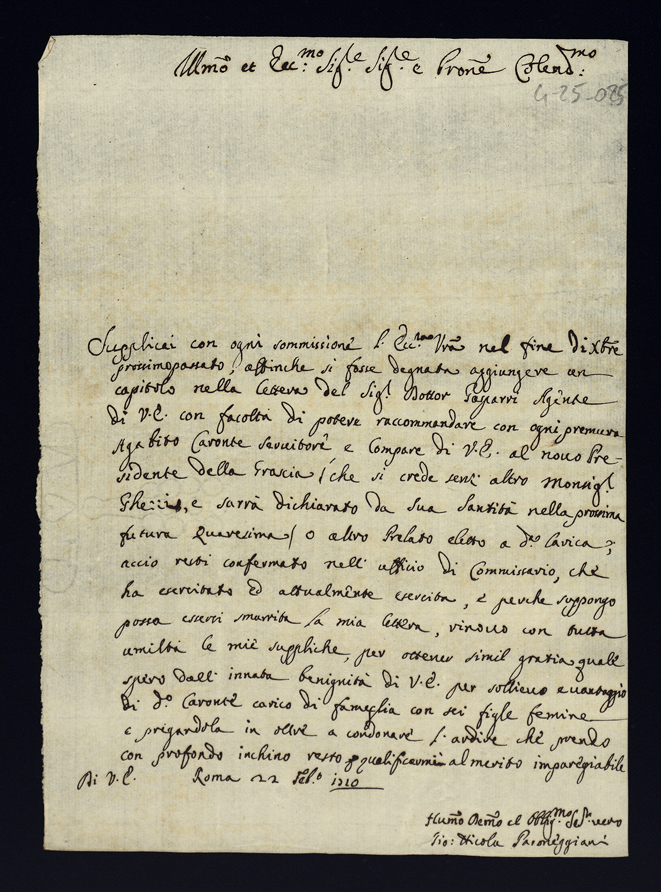 Illmõ et Ecc:mo Sig.re Sig.re e Prone Colend:mo
4-25-025
Supplicai con ogni sommissione l'Ecc.mo Vrã nel fine di Xbre
prossimopassato, affinche si fosse degnata aggiungere un
capitolo nella lettera del Sig.r Dottor Gasparri Agente
di V.E. con facoltà di potere raccommandare con ogni premura
Agabito Caronte servitore e Compare di V.E. al novo Pre-
sidente della Grascia (che si crede senz'altro Monsig.r
e sarrà dichiarato da Sua Santità nella prossima
futura Quaresima) o altro Prelato eletto a d.o Carica,
accio resti confermato nell'uffitio di Commissario, che
ha esercitato ed attualmente esercita, e perche suppongo
possa essersi smarrita la mia lettera, rinovo con tutta
umiltà le mie suppliche, per ottener simil gratia quale
spero dall'innata benignità di V.E. per sollievo e vantaggio
di d.o Caronte carico di fameglia con sei figle femine
e pregandola in oltre a condonare l'ardire che prendo
con profondo inchino resto e qualificarmi al merito impareggiabile
Di V.E. Roma 22 Feb.o 1710
Humõ Demõ et Obblig.mo Se.re vero
Gio: Nicola